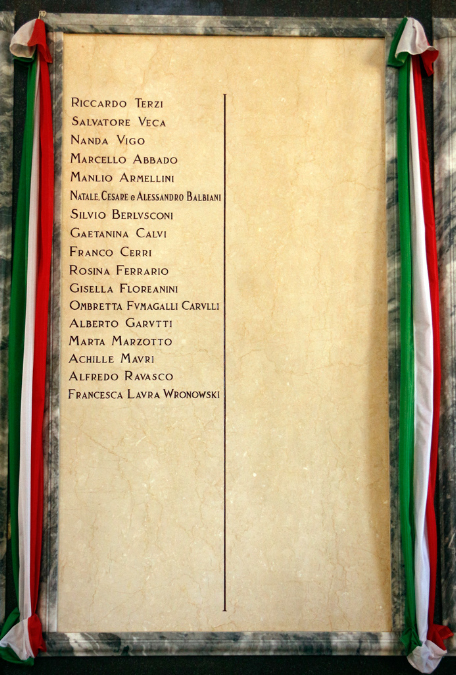 Riccardo Terzi
Salvatore Veca
Nanda Vigo
Marcello Abbado
Manlio Armellini
Natale, Cesare e Alessandro Balbiani
Silvio Berlvsconi
Gaetanina Calvi
Franco Cerri
Rosina Ferrario
Gisella Floreanini
Ombretta Fvmagalli Carvlli
Alberto Garvtti
Marta Marzotto
Achille Mavri
Alfredo Ravasco
Francesca Lavra Wronowski